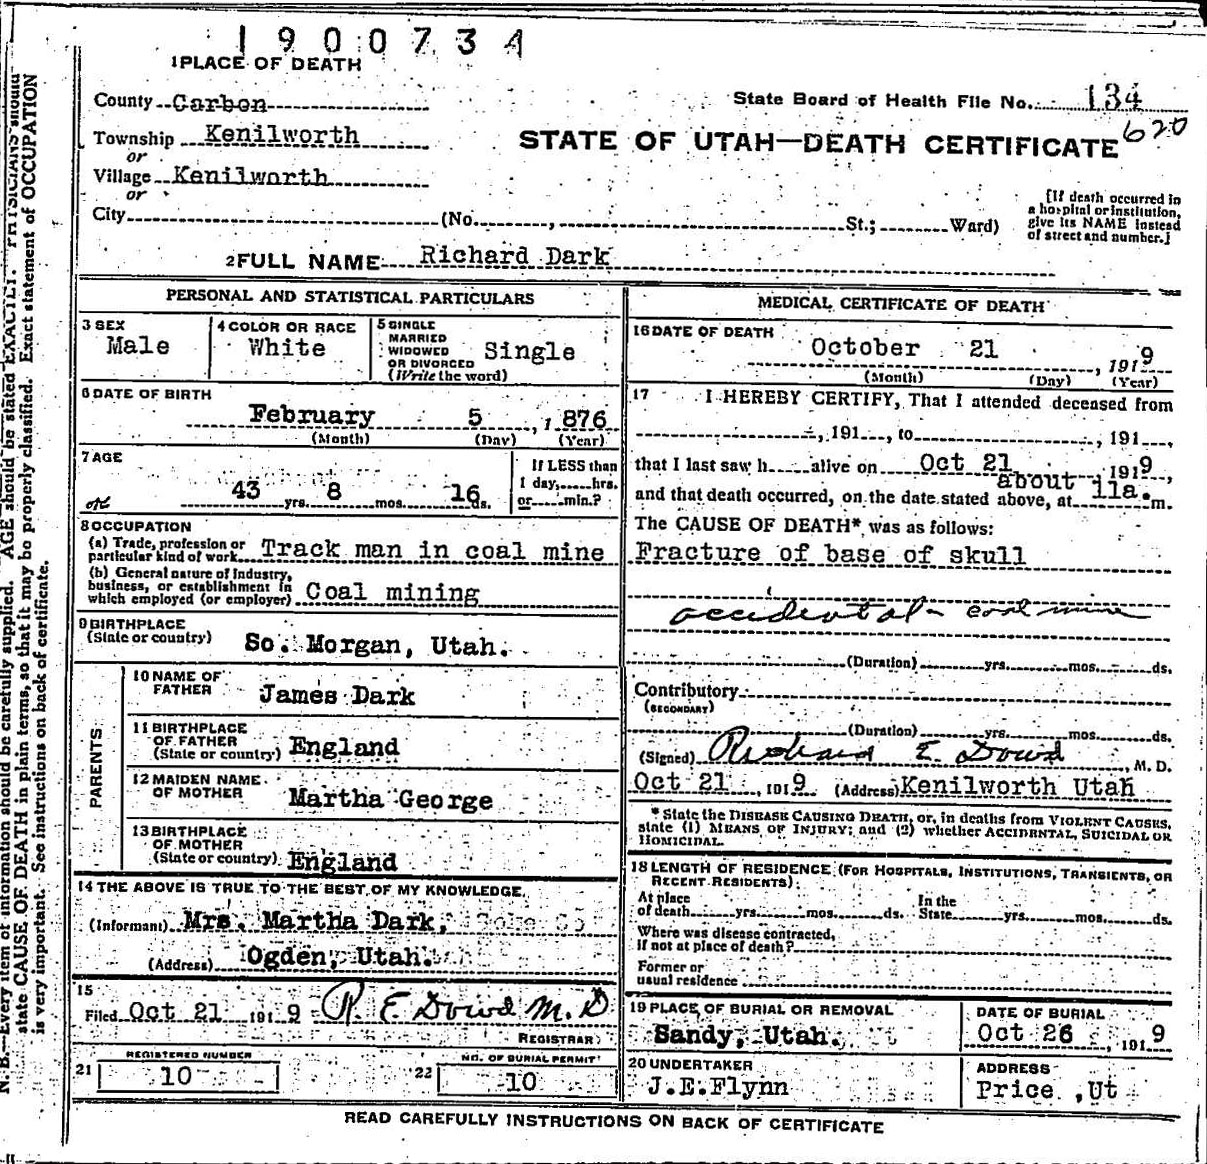 1900734
1 PLACE OF DEATH
County Carbon
State Board of Health File No. 134
620
Township Kenilworth
or
STATE OF UTAH—DEATH CERTIFICATE
Village Kenilworth
or
City (No. , St.; Ward)
[If death occurred in
a hospital or institution,
give its NAME instead
of street and number.]
2 FULL NAME Richard Dark
PERSONAL AND STATISTICAL PARTICULARS
3 SEX
Male
4 COLOR OR RACE
White
5 SINGLE
MARRIED
WIDOWED
OR DIVORCED
(Write the word)
Single
6 DATE OF BIRTH
February 5 , 1 876
(Month) (Day) (Year)
7 AGE
43 yrs. 8 mos. 16 ds.
If LESS than
1 day, hrs.
or min.?
8 OCCUPATION
(a) Trade, profession or
particular kind of work Track man in coal mine
(b) General nature of Industry,
business, or establishment in
which employed (or employer) Coal mining
9 BIRTHPLACE
(State or country) So. Morgan, Utah.
PARENTS
10 NAME OF
FATHER James Dark
11 BIRTHPLACE
OF FATHER
(State or country) England
12 MAIDEN NAME
OF MOTHER Martha George
13 BIRTHPLACE
OF MOTHER
(State or country) England
14 THE ABOVE IS TRUE TO THE BEST OF MY KNOWLEDGE
(Informant) Mrs. Martha Dark,
(Address) Ogden, Utah.
15
Filed Oct 21 191 9 R. E. Dowd M.D
REGISTRAR
21 REGISTERED NUMBER
10
22 NO. OF BURIAL PERMIT
10
MEDICAL CERTIFICATE OF DEATH
16 DATE OF DEATH
October 21 , 191 9
(Month) (Day) (Year)
17 I HEREBY CERTIFY, That I attended deceased from
, 191 , to , 191 ,
that I last saw h alive on Oct 21 191 9,
about
and that death occurred, on the date stated above, at 11a. m.
The CAUSE OF DEATH* was as follows:
Fracture of base of skull
accidental - coal mine
(Duration) yrs. mos. ds.
Contributory
(SECONDARY)
(Duration) yrs. mos. ds.
(Signed) Richard E. Dowd , M. D.
Oct 21 , 191 9 (Address) Kenilworth Utah
* State the DISEASE CAUSING DEATH, or, in deaths from VIOLENT CAUSES,
state (1) MEANS OF INJURY; and (2) whether ACCIDENTAL, SUICIDAL OR
HOMICIDAL.
18 LENGTH OF RESIDENCE (FOR HOSPITALS, INSTITUTIONS, TRANSIENTS, OR
RECENT RESIDENTS)
At place
of death yrs. mos. ds.
In the
State yrs. mos. ds.
Where was disease contracted,
if not at place of death?
Former or
usual residence
19 PLACE OF BURIAL OR REMOVAL
Sandy, Utah.
DATE OF BURIAL
Oct 26 , 191 9
20 UNDERTAKER
J.E.Flynn
ADDRESS
Price ,Ut
READ CAREFULLY INSTRUCTIONS ON BACK OF CERTIFICATE
N. B.—Every item of information should be carefully supplied. AGE should be stated EXACTLY. PHYSICIANS should
state CAUSE OF DEATH in plain terms, so that it may be properly classified. Exact statement of OCCUPATION
is very important. See instructions on back of certificate.